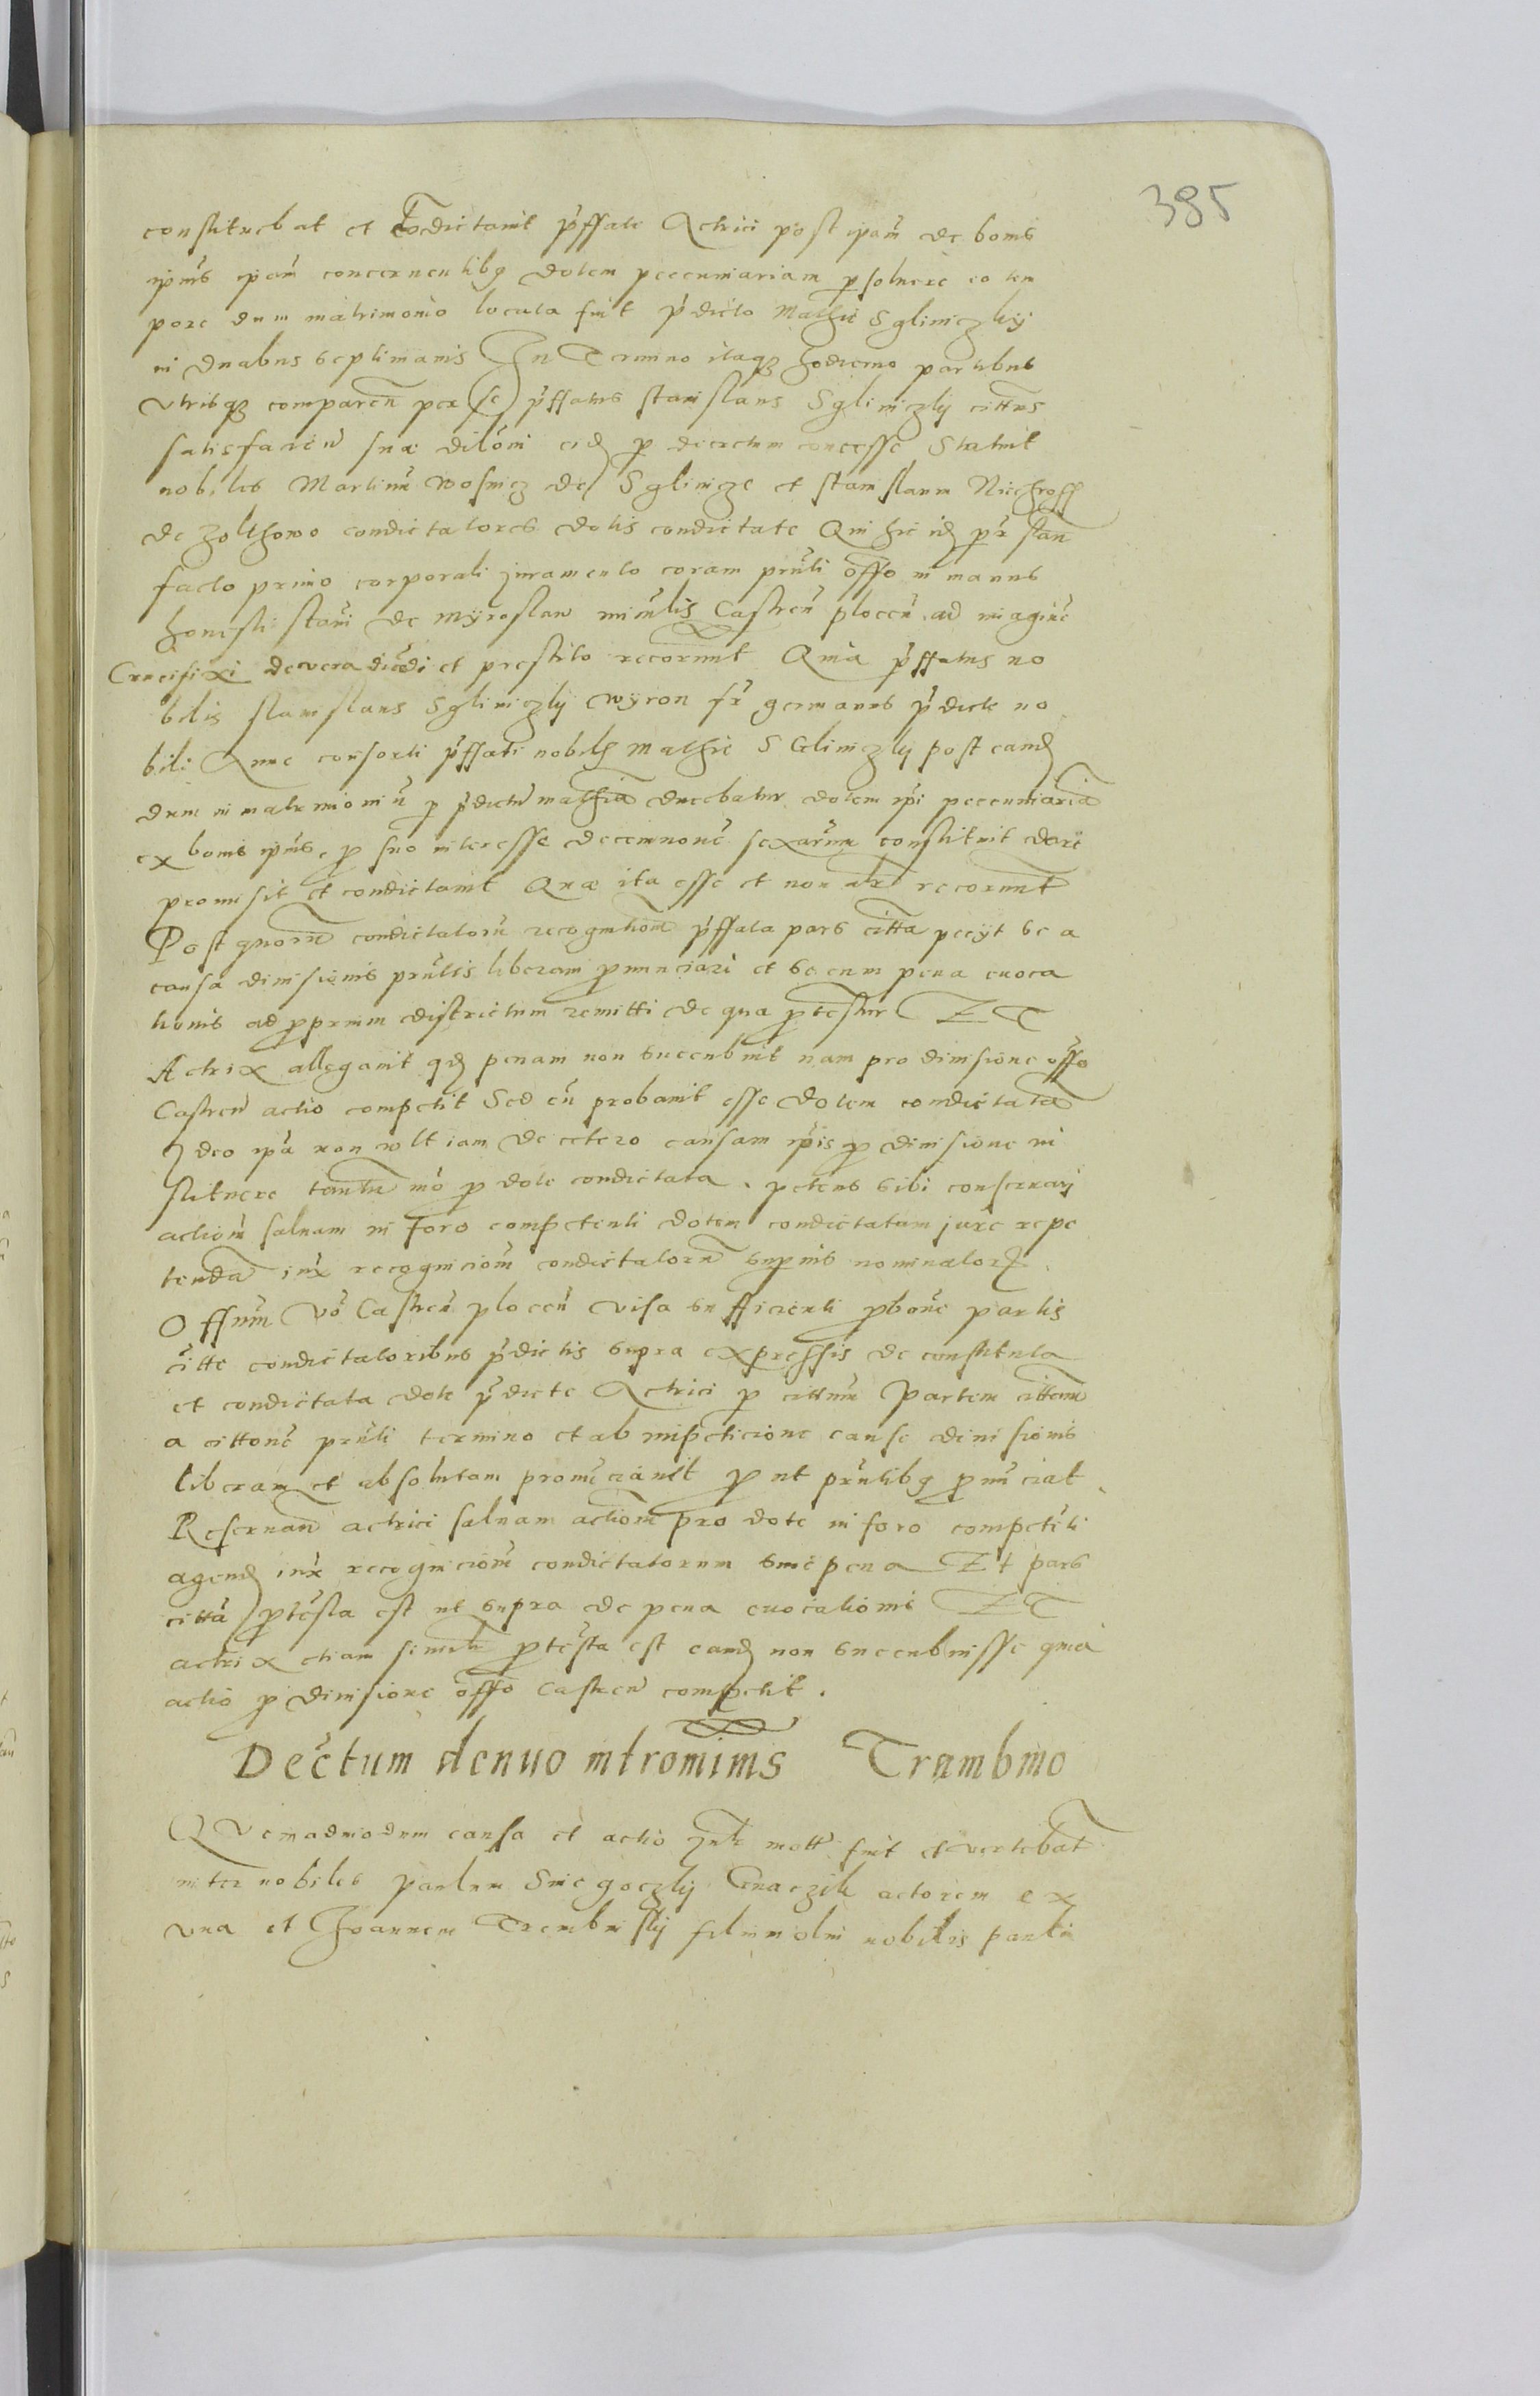 385
constituebat et Codictavit pffate Actrici post ipam de bonis
ipius ipam concernentibq dotem peccuniariam psolvere eo tem
pore dum matrimonio locata fuit pdicto Mathie Sgliniczkij
in duabus septimanis In Termino itaqz hodierno partibus
Utrisqz comparen per se pffatus stanislaus Sgliniczkij cittus
satisfacien suae diloni eid p decretum concesse Statuit
nobiles Martinu Wosnicz de Sglinicze et stanislaum
de Zolthowo condictatores dotis condictate Qui hic id
facto primo corporali juramento coram pnti offo in manus
honesti stani de Myroslaw minlis Castren plocen ad imagine
Crucifixi de vera dicedi et prestito recorunt Quia pffatus no
bilis stanislaus Sgliniczkij Wyron fr germanus pdicte no
bili Anne consorti pffati nobilis Mathie SGliniczkij post eand
dum in matrimoniu p pdictu mathia ducebatur dotem ipi peccuniaria
ex bonis ipius p suo interesse decemnove sexarum constituit dare
promisit et condictavit Quae ita esse et non alr recorunt
Post quorum condictatoru recognitiom pffata pars citta peciit se a
causa divisionis pntis liberam pnunciari et se cum pena evoca
tionis ad pprium districtum remitti de qua ptestur ZT
Actrix allegavit qd penam non sucubuit nam pro divisione offo
Castren actio competit Sed cu probavit esse dotem condictata
Ideo ipa non vult iam de cetero causam ipis p divisione in
stituere tantu mo p dote condictata. petens sibi conservarj
actiom salvam in foro competenti dotem condictatam jure repe
tenda iux recogniciom condictatoru superius nominator
Offium vo Castren plocen visa sufficienti pbone partis
citte condictatoribus pdictis supra expressis de constituta
et condictata dote pdicte Actrici p cittum Partem cittam
a cittone pnti termino et ab impeticione cause divisionis
liberam et absolutam pronuciavit put pntibq pnuciat
Reservan actrici salvam actiom pro dote in foro competeti
agend iux recogniciom condictatorum sine pena Et pars
citta ptesta est ut supra de pena evocationis ZT
actrix etiam simili ptesta est eand non sucubuisse quia
actio p divisione offo Castren competit.
Dectum denuo intromimis Trambino
QVemadmodum causa et actio mott fuit et vertebat
inter nobiles paulum Sniegoczkij Gnaczik actorem ex
una et Joannem Trembinskij filium olim nobilis pauli